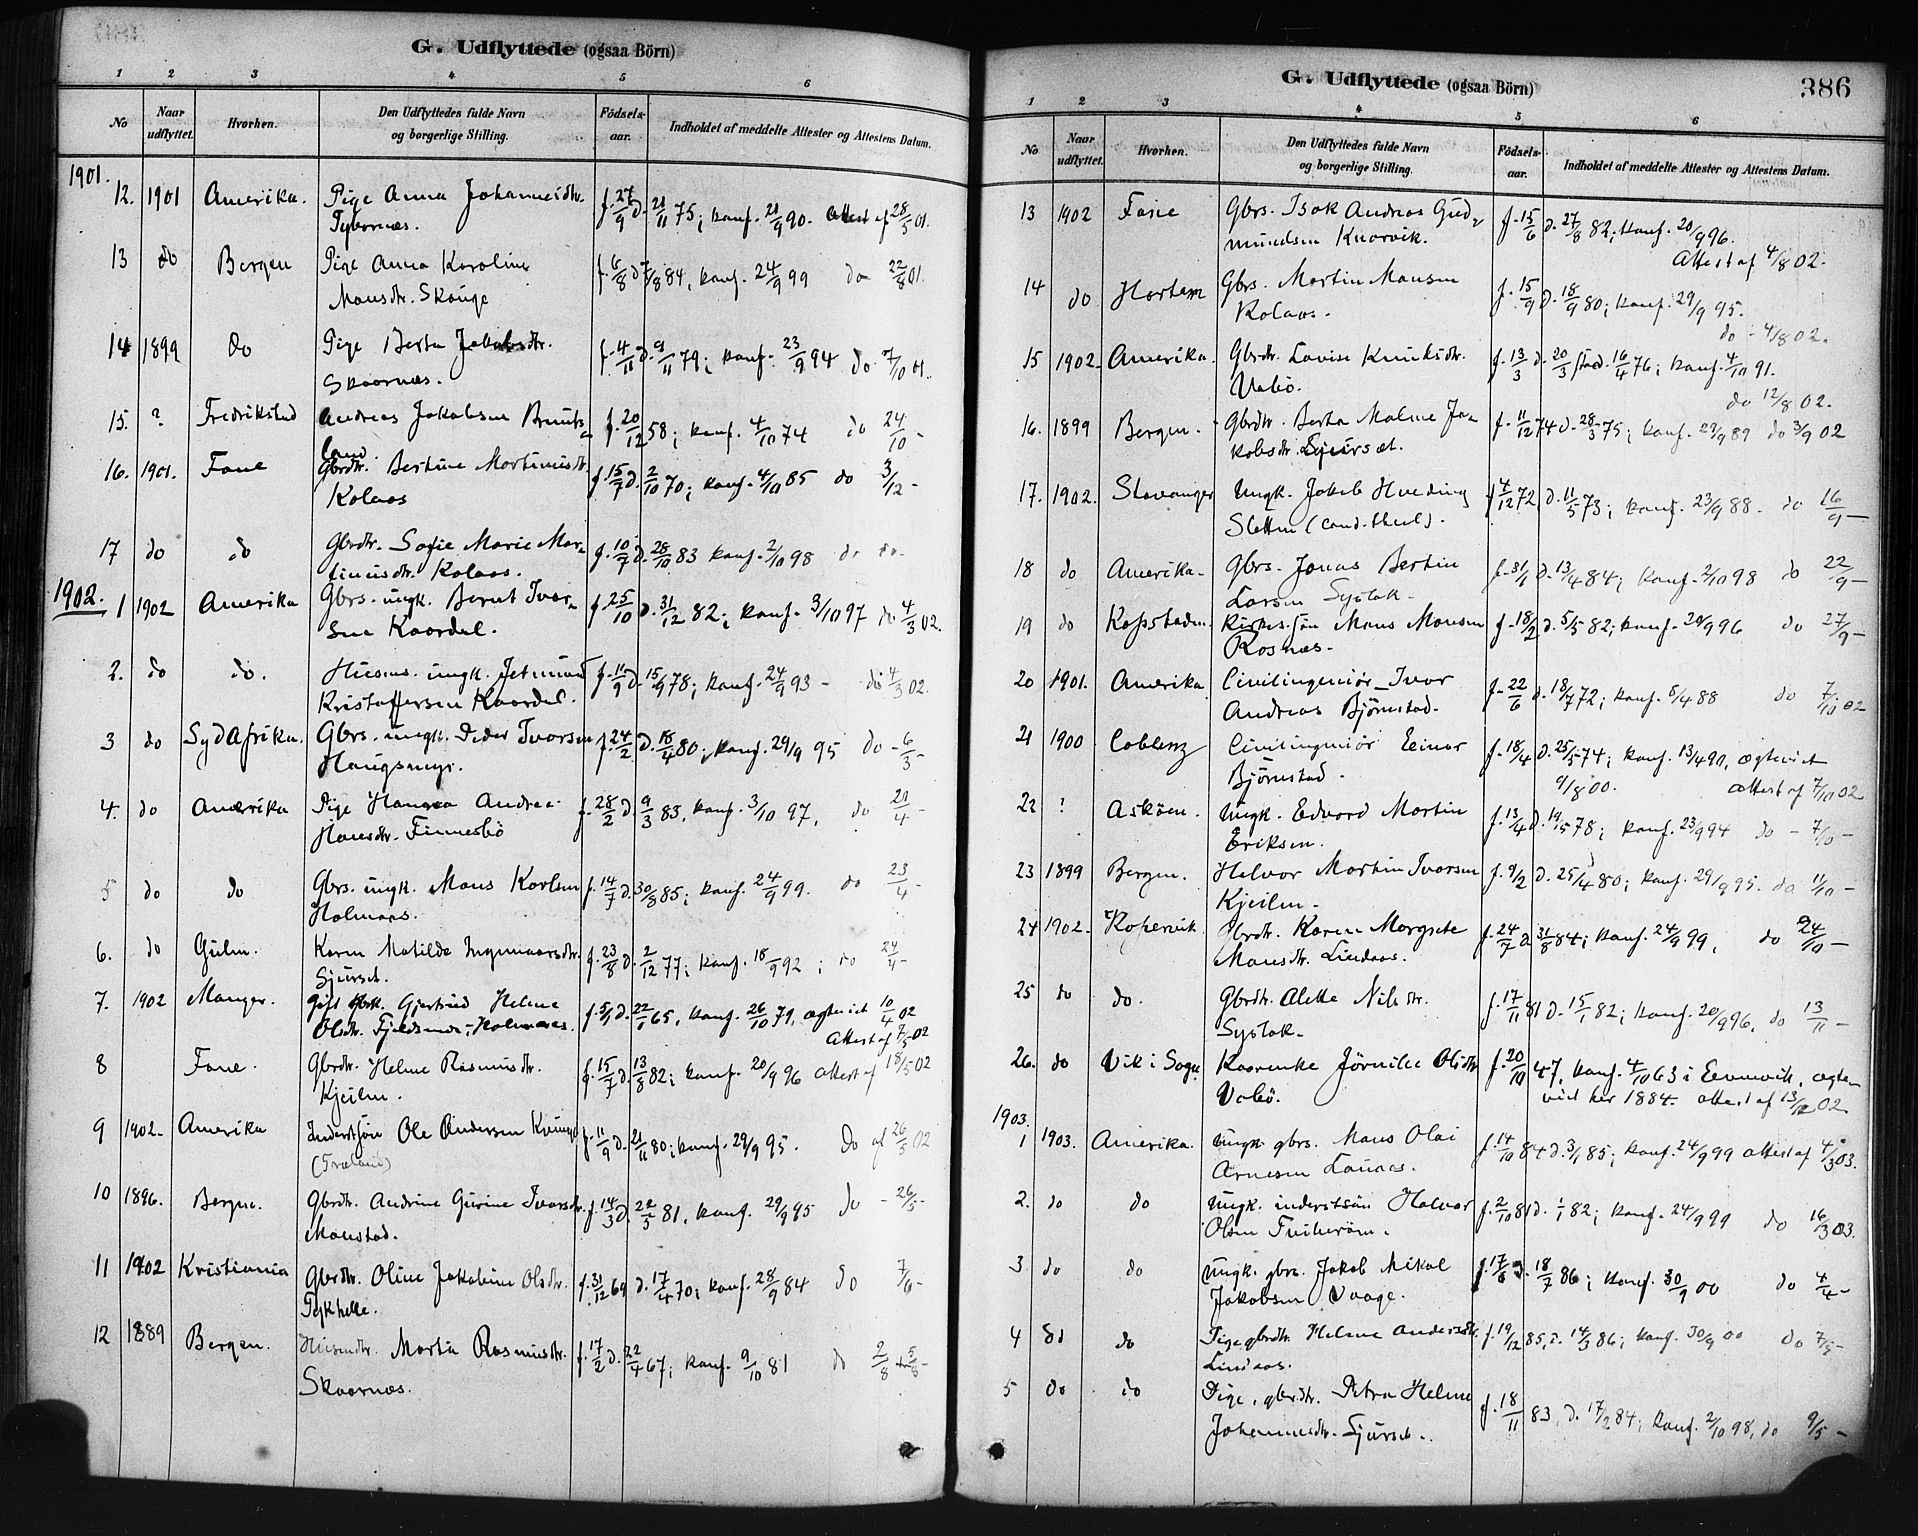 G. Udflyttede (ogsaa Börn)
1 2 3 4 5 6
No Naar udflyttet. Hvorhen. Den Udflyttedes fulde Navn og borgerlige Stilling. Födsels-aar. Indholdet af meddelte Attester og Attestens Datum.
1901.
12. 1901 Amerika. Pige Anna Johannesdtr. f. 27/9 d. 21/11 75; konf. 21/9 90. Attest af 28/5 01.
13 do Bergen Pige Anna Karoline f. 6/8 84, konf. 24/9 99 do 22/8 01.
Monsdtr. Skauge
14 1899 do Pige Berta Jakobsdtr. f. 4/11 d. 9/11 79; konf. 23/9 94 do 7/10 01.
Skaornæs.
15. ? Fredrikstad Andreas Jakobsen f. 20/12 58; konf. 4/10 74 do 24/10 -
land.
16. 1901. Fane Gbrdtr. Bertine Mortinusdtr. f. 15/7 d. 2/10 70; konf. 4/10 85 do 3/12 -
Kolaas
17 do do Gbrdtr. Sofie Marie Mor- f. 10/7 d. 28/10 83 konf. 2/10 98 do do.
tinusdtr. Kolaas.
1902. 1 1902 Amerika Gbrs. ungk. Bernt Ivar- f. 25/10 d. 31/12 82; konf. 3/10 97 do 4/3 02.
sen Kaardal.
2. do do. Husms. ungk. Jetmund f. 11/9 d. 15/9 78; konf. 24/9 93 - do 4/3 02.
Kristoffersen Kaardal.
3 do Syd Afrika. Gbrs. ungk. Peder Ivarsen f. 24/2 d. 18/4 80; konf. 29/9 95 do - 6/3 -
Haugsmyr.
4. do Amerika Pige Hanna Andrea f. 28/2 d. 9/3 83, konf. 3/10 97, do 21/4 -
Hansdtr. Finnesbö
5 do do Gbrs. ungk. Mons Karlsen f. 14/7 d. 30/8 85; konf. 24/9 99. do 23/4 -
Holmaas.
6. do Gulen. Karen Matilde Ingmaarsdtr. f. 23/8 d. 2/12 77; konf. 18/9 92; do 24/4 -
Sjurset.
7. 1902 Manger. Gjertrud Helene d. 22/1 65, konf. 26/10 79, ægteviet 10/4 02
Olsdtr. Holmaas. Attest af 7/5 02
8 Fane. Gbrdtr. Helene Rasmusdtr. f. 15/7 d. 13/8 82; konf. 20/9 96 attest af 18/5 02
Kjeilen.
9 1902. Amerika Inderstsön Ole Andersen f. 11/9 d. 21/11 80; konf. 29/9 95. Do af 26/5 02
(Træland)
10 1896. Bergen. Gbrdtr. Andrine Gurine Ivarsdtr. f. 14/3 d. 22/5 81, konf. 29/9 95 do - 26/5 -
Monstad.
11 1902 Kristiania Gbrdtr. Oline Jakobine Olsdtr. f. 31/12 69 d. 17/4 70; konf. 28/9 84 do 7/6 -
12 1889 Bergen. Husmdtr. Marta Rasmusdtr. f. 17/2 d. 22/4 67; konf. 9/10 81 do 2/8 5/8 -
Skaornæs.
G. Udflyttede (ogsaa Börn) 386
1 2 3 4 5 6
No Naar udflyttet. Hvorhen. Den Udflyttedes fulde Navn og borgerlige Stilling. Födsels-aar. Indholdet af meddelte Attester og Attestens Datum.
13 1902 Fane Gbrs. Isak Andreas Gud- f. 15/6 d. 27/8 82; konf. 20/9 96.
mundsen Knarvik. Attest af 4/8 02.
14 do Gbrs. Martin Monsen f. 15/9 d. 18/9 80; konf. 29/9 95.
Kolaas. do - 4/8 02.
15 1902. Amerika. Gbrdtr. Lovise Knutsdtr. f. 13/3 d. 20/3 stad. 16/4 76; konf. 4/10 91.
Vabö. do 12/8 02.
16. 1899 Bergen. Gbrdtr. Berta Malene Ja- f. 11/12 74 d. 28/3 75; konf. 29/9 89 do 3/9 02
kobsdtr. Sjurset.
17. 1902. Stavanger Ungk. Jakob Hveding f. 4/12 72 d. 11/5 73; konf. 23/9 88. do 16/9 -
Sletten (cand. theol).
18 do Amerika. Gbrs. Jonas Bertin f. 31/1 d. 13/4 84; konf. 2/10 98 do 22/9 -
Larsen Syslak.
19 do Kapstaden. sön Mons Monsen f. 18/2 d. 5/5 82; konf. 20/9 96 do 27/9 -
Rosnæs.
20 1901. Amerika Civilingeniör Ivar f. 22/6 d. 18/7 72; konf. 8/4 88 do 7/10 02
Andreas Björnstad.
21 1900 Coblenz Civilingeniör Einar f. 18/4 d. 25/5 74; konf. 13/4 90, ægteviet
Björnstad. 9/8 00. attest af 7/10 02
22 ? Asköen. Ungk. Edvard Martin f. 13/4 d. 19/5 78; konf. 23/9 94 do - 7/10 -
Eriksen.
23 1899 Bergen. Halvor Martin Ivarsen f. 9/2 d. 25/4 80; konf. 29/9 95. do 11/10 -
Kjeilen.
24 1902. Kopervik Gbrdtr. Karen Margrete f. 24/7 d. 31/8 84; konf. 24/9 99, do 24/10 -
Monsdtr. Lindaas.
25 do do. Gbrdtr. Alette Nilsdtr. f. 17/11 81 d. 15/1 82; konf. 20/9 96, do 13/11 -
Syslak.
26. do Vik i Sogn Kaarenke Jörnilie Olsdtr f. 20/10 47, konf. 4/10 63 i Evenvik, ægte-
Vabö. viet her 1884. attest af 13/12 02
1903.
1 1903. Amerika. Ungk. gbrs. Mons Olai f. 14/10 84 d. 3/1 85; konf. 24/9 99 attest af 4/3 03.
Arnesen Lauaas.
2. do do Ungk. inderstsön Halvor f. 2/10 81 d. 1/1 82; konf. 24/9 99 do 16/3 03.
Olsen
3 do do Ungk. gbrs. Jakob Mikal f. 17/6 d. 18/7 86; konf. 30/9 00 do 4/4 -
Jakobsen Vaage.
4 do do Pige gbrdtr. Helene Andersdtr. f. 19/12 85, d. 14/3 86; konf. 30/9 00 do 7/5 -
Lindaas.
5 do do Pige, gbrdtr. Petra Helene f. 18/11 83, d. 17/2 84; konf. 2/10 98, do 9/5 -
Johannesdtr. Sjurset.